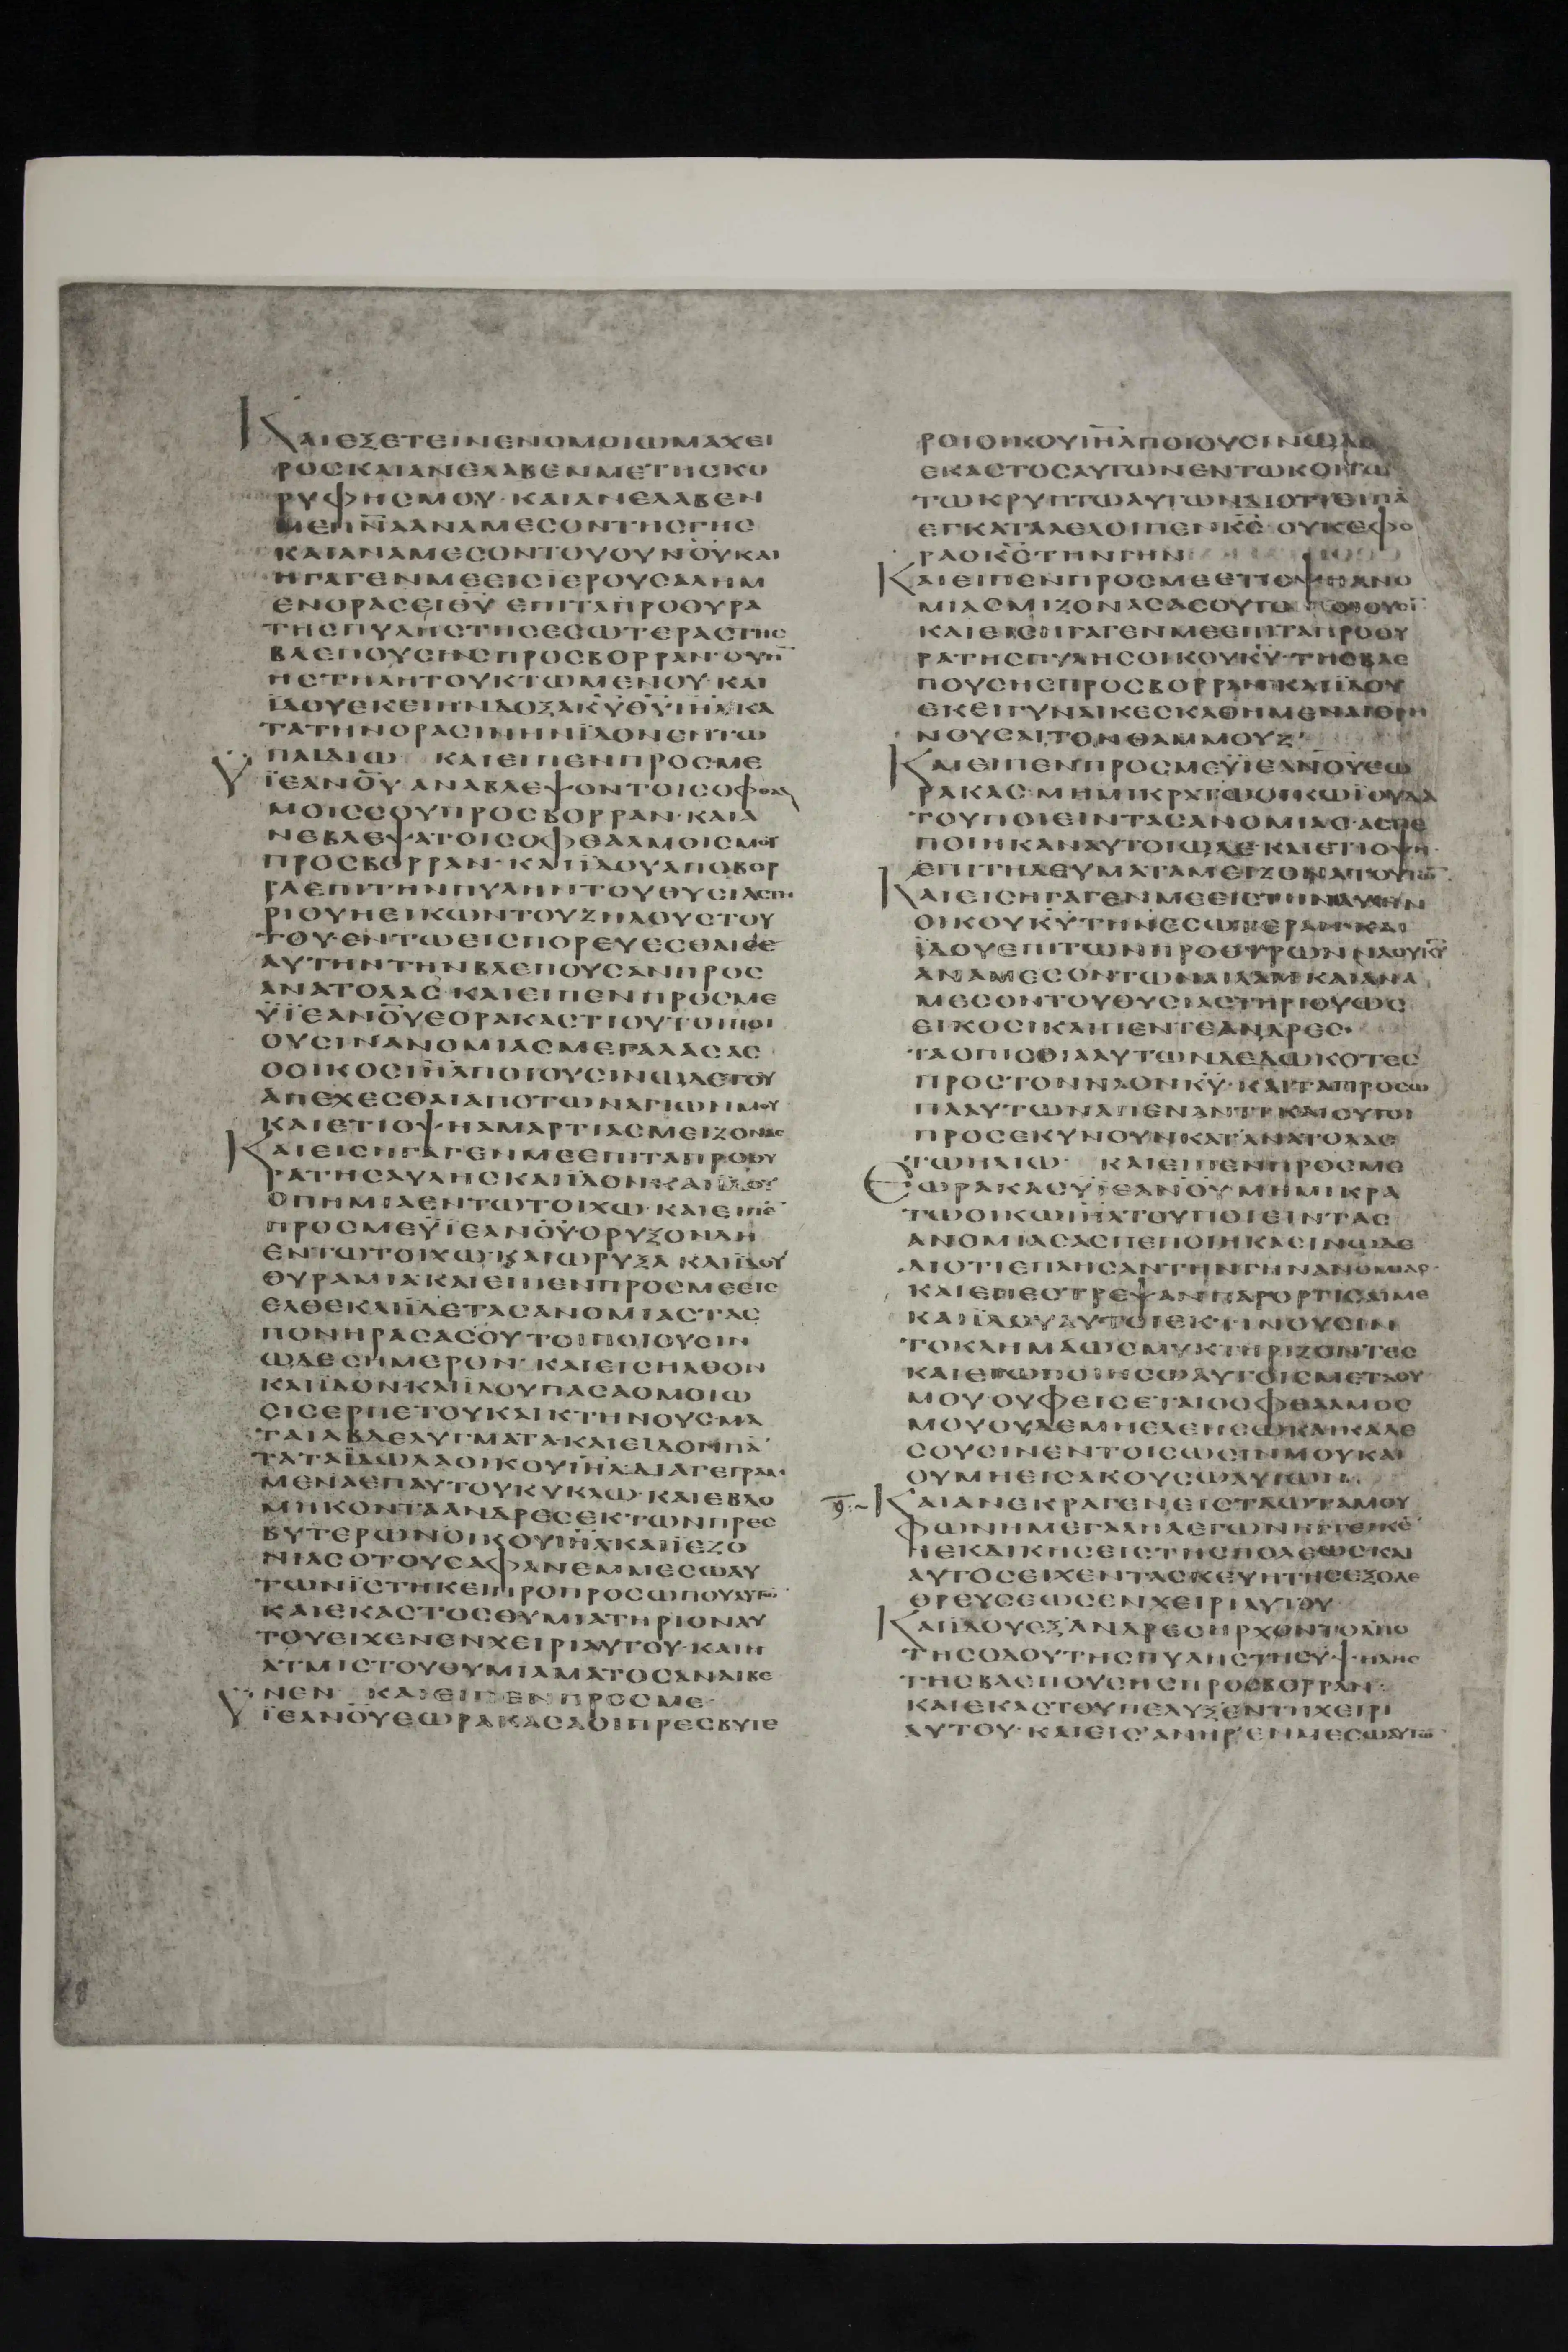 ΚΑΙΕΞΕΤΕΙΝΕΝΟΜΟΙΩΜΑΧΕΙ
ΡΟΣΚΑΙΑΝΕΛΑΒΕΝΜΕΤΗΣΚΟ
ΡΥΦΗΣΜΟΥ·ΚΑΙΑΝΕΛΑΒΕΝ
ΜΕΠΝ̅ΑΑΝΑΜΕΣΟΝΤΗΣΓΗΣ
ΚΑΙΑΝΑΜΕΣΟΝΤΟΥΟΥΝΟΥΚΑΙ
ΗΓΑΓΕΝΜΕΕΙΣΪΕΡΟΥΣΑΛΗΜ
ΕΝΟΡΑΣΕΙΘ̅Υ̅ ΕΠΙΤΑΠΡΟΘΥΡΑ
ΤΗΣΠΥΛΗΣΤΗΣΕΣΩΤΕΡΑΣΤΗΣ
ΒΛΕΠΟΥΣΗΣΠΡΟΣΒΟΡΡΑΝ·ΟΥΗ̅
ΗΣΤΗΛΗΤΟΥΚΤΩΜΕΝΟΥ·ΚΑΙ
ΪΔΟΥΕΚΕΙΗΝΔΟΞΑΚ̅Υ̅Θ̅Υ̅Ι̅Η̅Λ̅·ΚΑ
ΤΑΤΗΝΟΡΑΣΙΝΗΝΪΔΟΝΕΝΤΩ
ΠΑΙΔΙΩ ΚΑΙΕΙΠΕΝΠΡΟΣΜΕ
ΥΪΕΑΝΟ̅Υ̅ ΑΝΑΒΛΕΨΟΝΤΟΙΣΟΦΘΑΛ
ΜΟΙΣΣΟΥΠΡΟΣΒΟΡΡΑΝ·ΚΑΙΑ
ΝΕΒΛΕΨΑΤΟΙΣΟΦΘΑΛΜΟΙΣΜΟΥ
ΠΡΟΣΒΟΡΡΑΝ·ΚΑΙΪΔΟΥΑΠΟΒΟΡ
ΡΑΕΠΙΤΗΝΠΥΛΗΝΤΟΥΘΥΣΙΑΣΤΗ
ΡΙΟΥΗΕΙΚΩΝΤΟΥΖΗΛΟΥΣΤΟΥ
ΤΟΥ·ΕΝΤΩΕΙΣΠΟΡΕΥΕΣΘΑΙΔΕ
ΑΥΤΗΝΤΗΝΒΛΕΠΟΥΣΑΝΠΡΟΣ
ΑΝΑΤΟΛΑΣ·ΚΑΙΕΙΠΕΝΠΡΟΣΜΕ
ΫΪΕΑΝΟ̅Υ̅ΕΟΡΑΚΑΣΤΙΟΥΤΟΙΠΟΙ
ΟΥΣΙΝΑΝΟΜΙΑΣΜΕΓΑΛΑΣΑΣ
ΟΟΙΚΟΣΙ̅Η̅Λ̅ΠΟΙΟΥΣΙΝΩΔΕΤΟΥ
ΑΠΕΧΕΣΘΑΙΑΠΟΤΩΝΑΓΙΩΝΜΟΥ·
ΚΑΙΕΤΙΟΨΗΑΜΑΡΤΙΑΣΜΕΙΖΟΝΑΣ
ΚΑΙΕΙΣΗΓΑΓΕΝΜΕΕΠΙΤΑΠΡΟΘΥ
ΡΑΤΗΣΑΥΛΗΣΚΑΙΪΔΟΝ·ΚΑΙΪΔΟΥ
ΟΠΗΜΙΑΕΝΤΩΤΟΙΧΩ·ΚΑΙΕΙΠΕ̅
ΠΡΟΣΜΕΫΪΕΑΝΟ̅Υ̅·ΟΡΥΞΟΝΔΗ
ΕΝΤΩΤΟΙΧΩ·ΚΑΙΩΡΥΞΑ ΚΑΙΪΔΟΥ
ΘΥΡΑΜΙΑ·ΚΑΙΕΙΠΕΝΠΡΟΣΜΕΕΙΣ
ΕΛΘΕΚΑΙΪΔΕΤΑΣΑΝΟΜΙΑΣΤΑΣ
ΠΟΝΗΡΑΣΑΣΟΥΤΟΙΠΟΙΟΥΣΙΝ
ΩΔΕΣΗΜΕΡΟΝ·ΚΑΙΕΙΣΗΛΘΟΝ
ΚΑΙΪΔΟΝ·ΚΑΙΪΔΟΥΠΑΣΑΟΜΟΙΩ
ΣΙΣΕΡΠΕΤΟΥΚΑΙΚΤΗΝΟΥΣ·ΜΑ
ΤΑΙΑΒΔΕΛΥΓΜΑΤΑ·ΚΑΙΕΙΔΟΝΠΑ̅
ΤΑΤΑΪΔΩΛΑΟΙΚΟΥΙ̅Η̅Λ̅ΔΙΑΓΕΓΡΑΜ
ΜΕΝΑΕΠΑΥΤΟΥΚΥΚΛΩ·ΚΑΙΕΒΔΟ
ΜΗΚΟΝΤΑΑΝΔΡΕΣΕΚΤΩΝΠΡΕΣ
ΒΥΤΕΡΩΝΟΙΚΟΥΙ̅Η̅Λ̅ΚΑΙΪΕΖΟ
ΝΙΑΣΟΤΟΥΣΑΦΑΝΕΜΜΕΣΩΑΥ
ΤΩΝΪΣΤΗΚΕΙΠΡΟΠΡΟΣΩΠΟΥΑΥΤΩ̅
ΚΑΙΕΚΑΣΤΟΣΘΥΜΙΑΤΗΡΙΟΝΑΥ
ΤΟΥΕΙΧΕΝΕΝΧΕΙΡΙΑΥΤΟΥ·ΚΑΙΗ
ΑΤΜΙΣΤΟΥΘΥΜΙΑΜΑΤΟΣΑΝΑΙΒΕ
ΝΕΝ ΚΑΙΕΙΠΕΝΠΡΟΣΜΕ·
ΥΪΕΑΝΟ̅Υ̅ΕΩΡΑΚΑΣΑΟΙΠΡΕΣΒΥΤΕ
ΡΟΙΟΙΚΟΥΙ̅Η̅Λ̅ΠΟΙΟΥΣΙΝΩΔΕ
ΕΚΑΣΤΟΣΑΥΤΩΝΕΝΤΩΚΟΙΤΩ
ΤΩΚΡΥΠΤΩΑΥΤΩΝΔΙΟΤΙΕΙΠΑ̅
ΕΓΚΑΤΑΛΕΛΟΙΠΕΝΚ̅Σ̅ ΟΥΚΕΦΟ
ΡΑΟΚ̅Σ̅ΤΗΝΓΗΝ
ΚΑΙΕΙΠΕΝΠΡΟΣΜΕΕΤΙΟΨΗΑΝΟ
ΜΙΑΣΜΙΖΟΝΑΣΑΣΟΥΤΟΙΠΟΙΟΥΣΙ̅
ΚΑΙΕΙΣΗΓΑΓΕΝΜΕΕΠΙΤΑΠΡΟΘΥ
ΡΑΤΗΣΠΥΛΗΣΟΙΚΟΥΚ̅Υ̅·ΤΗΣΒΛΕ
ΠΟΥΣΗΣΠΡΟΣΒΟΡΡΑΝ·ΚΑΙΪΔΟΥ
ΕΚΕΙΓΥΝΑΙΚΕΣΚΑΘΗΜΕΝΑΙΘΡΗ
ΝΟΥΣΑΙΤΟΝΘΑΜΜΟΥΖ·
ΚΑΙΕΙΠΕΝΠΡΟΣΜΕΫΪΕΑΝΟ̅Υ̅ΕΩ
ΡΑΚΑΣ·ΜΗΜΙΚΡΑΤΩΟΙΚΩΪΟΥΔΑ
ΤΟΥΠΟΙΕΙΝΤΑΣΑΝΟΜΙΑΣ·ΑΣΠΕ
ΠΟΙΗΚΑΝΑΥΤΟΙΩΔΕ·ΚΑΙΕΤΙΟΨΗ
ΕΠΙΤΗΔΕΥΜΑΤΑΜΕΙΖΟΝΑΤΟΥΤΩ̅·
ΚΑΙΕΙΣΗΓΑΓΕΝΜΕΕΙΣΤΗΝΑΥΛΗΝ
ΟΙΚΟΥΚ̅Υ̅·ΤΗΝΕΣΩΤΕΡΑΝ·ΚΑΙ
ΪΔΟΥΕΠΙΤΩΝΠΡΟΘΥΡΩΝΝΑΟΥΚ̅Υ̅
ΑΝΑΜΕΣΟΝΤΩΝΑΙΛΑΜ·ΚΑΙΑΝΑ
ΜΕΣΟΝΤΟΥΘΥΣΙΑΣΤΗΡΙΟΥΩΣ
ΕΙΚΟΣΙΚΑΙΠΕΝΤΕΑΝΔΡΕΣ·
ΤΑΟΠΙΣΘΙΑΑΥΤΩΝΔΕΔΩΚΟΤΕΣ
ΠΡΟΣΤΟΝΝΑΟΝΚ̅Υ̅·ΚΑΙΤΑΠΡΟΣΩ
ΠΑΑΥΤΩΝΑΠΕΝΑΝΤΙ·ΚΑΙΟΥΤΟΙ
ΠΡΟΣΕΚΥΝΟΥΝΚΑΤΑΝΑΤΟΛΑΣ
ΤΩΗΛΙΩ· ΚΑΙΕΙΠΕΝΠΡΟΣΜΕ
ΕΩΡΑΚΑΣΥΪΕΑΝΟ̅Υ̅ΜΗΜΙΚΡΑ
ΤΩΟΙΚΩΙ̅Η̅Λ̅ΤΟΥΠΟΙΕΙΝΤΑΣ
ΑΝΟΜΙΑΣΑΣΠΕΠΟΙΗΚΑΣΙΝΩΔΕ
ΔΙΟΤΙΕΠΛΗΣΑΝΤΗΝΓΗΝΑΝΟΜΙΑΣ·
ΚΑΙΕΠΕΣΤΡΕΨΑΝΠΑΡΟΡΓΙΣΑΙΜΕ
ΚΑΙΪΔΟΥΑΥΤΟΙΕΚΤΙΝΟΥΣΙΝ
ΤΟΚΛΗΜΑΩΣΜΥΚΤΗΡΙΖΟΝΤΕΣ
ΚΑΙΕΓΩΠΟΙΗΣΩΑΥΤΟΙΣΜΕΤΑΘΥ
ΜΟΥ·ΟΥΦΕΙΣΕΤΑΙΟΟΦΘΑΛΜΟΣ
ΜΟΥΟΥΔΕΜΗΕΛΕΗΣΩΚΑΙΚΑΛΕ
ΣΟΥΣΙΝΕΝΤΟΙΣΩΣΙΝΜΟΥΚΑΙ
ΟΥΜΗΕΙΣΑΚΟΥΣΩΑΥΤΩΝ·
ΚΑΙΑΝΕΚΡΑΓΕΝΕΙΣΤΑΩΤΑΜΟΥ
ΦΩΝΗΜΕΓΑΛΗΛΕΓΩΝΗΓΓΕΙΚΕ̅
ΗΕΚΔΙΚΗΣΕΙΣΤΗΣΠΟΛΕΩΣΚΑΙ
ΑΥΤΟΣΕΙΧΕΝΤΑΣΚΕΥΗΤΗΣΕΞΟΛΕ
ΘΡΕΥΣΕΩΣΕΝΧΕΙΡΙΑΥΤΟΥ
ΚΑΙΪΔΟΥΕΞΑΝΔΡΕΣΗΡΧΟΝΤΟΑΠΟ
ΤΗΣΟΔΟΥΤΗΣΠΥΛΗΣΤΗΣΥΨΗΛΗΣ
ΤΗΣΒΛΕΠΟΥΣΗΣΠΡΟΣΒΟΡΡΑΝ·
ΚΑΙΕΚΑΣΤΟΥΠΕΛΥΞΕΝΤΗΧΕΙΡΙ
ΑΥΤΟΥ·ΚΑΙΕΙΣΑΝΗΡΕΝΜΕΣΩΑΥΤΩ̅